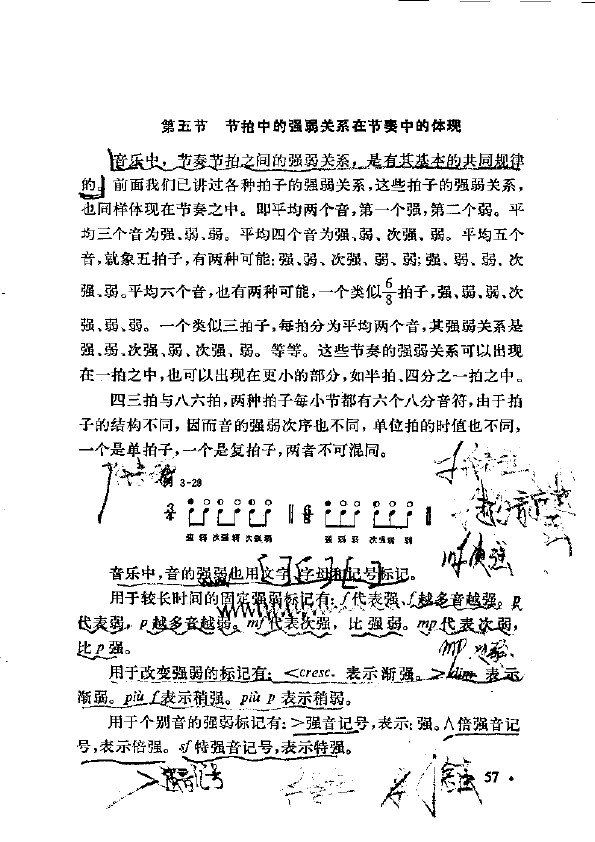 第五节 节拍中的强弱关系在节奏中的体现
音乐中，节奏节拍之间的强弱关系，是有其基本的共同规律
的。前面我们已讲过各种拍子的强弱关系，这些拍子的强弱关系，
也同样体现在节奏之中。即平均两个音，第一个强，第二个弱。平
均三个音为强、弱、弱。平均四个音为强、弱、次强、弱。平均五个
音，就象五拍子，有两种可能：强、弱、次强、弱、弱；强、弱、弱、次
强、弱。平均六个音，也有两种可能，一个类似6/8拍子，强、弱、弱、次
强、弱、弱。一个类似三拍子，每拍分为平均两个音，其强弱关系是
强、弱、次强、弱、次强、弱。等等。这些节奏的强弱关系可以出现
在一拍之中，也可以出现在更小的部分，如半拍、四分之一拍之中。
四三拍与八六拍，两种拍子每小节都有六个八分音符，由于拍
子的结构不同，因而音的强弱次序也不同，单位拍的时值也不同，
一个是单拍子，一个是复拍子，两者不可混同。
例 3-28
强 弱 次强 弱 次强 弱 强 弱 弱 次强 弱 弱
音乐中，音的强弱也用文字、字母和记号标记。
用于较长时间的固定强弱标记有：f代表强、f越多音越强。p
代表弱，p越多音越弱。mf代表次强，比强弱。mp代表次弱，
比p强。
mp
用于改变强弱的标记有：＜cresc. 表示渐强。＞dim 表示
渐弱。più f 表示稍强。più p 表示稍弱。
用于个别音的强弱标记有：＞强音记号，表示：强。∧倍强音记
号，表示倍强。sf特强音记号，表示特强。
＞强音记号
57 ·